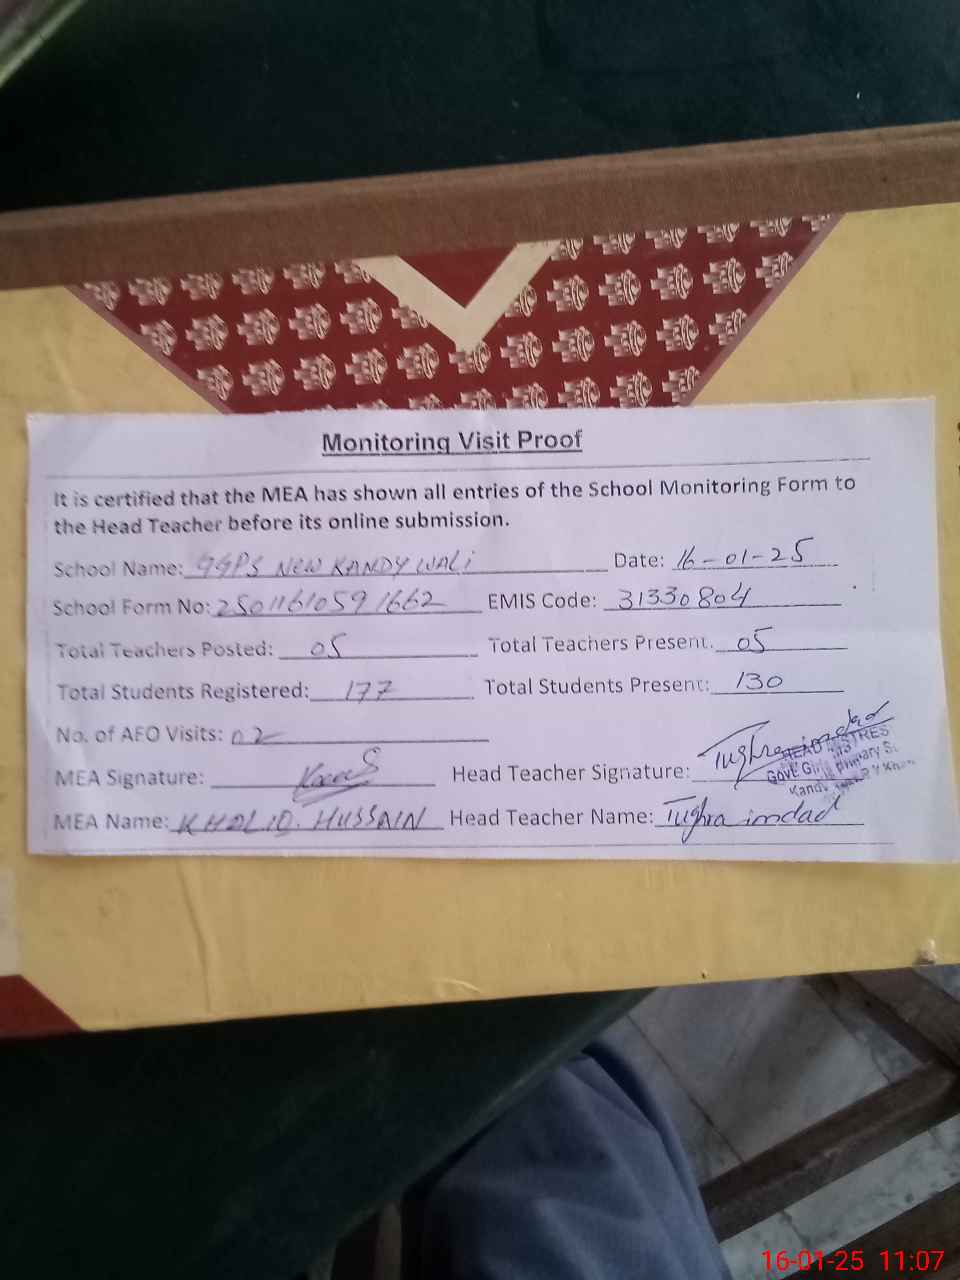 Monitoring Visit Proof
It is certified that the MEA has shown all entries of the School Monitoring Form to
the Head Teacher before its online submission.
School Name: GGPS NEW KANDY WALI Date: 16-01-25
School Form No: 25011610591662 EMIS Code: 31330804
Total Teachers Posted: 05 Total Teachers Present: 05
Total Students Registered: 177 Total Students Present: 130
No. of AFO Visits: 02
MEA Signature: Head Teacher Signature: Tughra imdad
HEAD MISTRES
Govt. Girls Primary S.
Kandy
MEA Name: KHALID. HUSSAIN Head Teacher Name: Tughra imdad
16-01-25 11:07